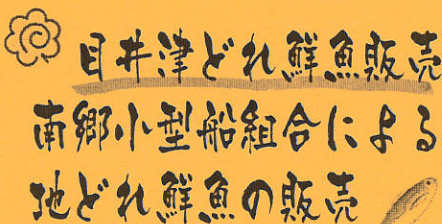 目井津どれ鮮魚販売
南郷小型船組合による
地どれ鮮魚の販売